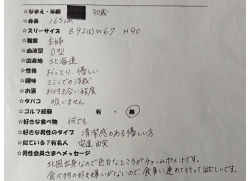 ☆なまえ・年齢 30歳
☆身長 165cm
☆スリーサイズ B92(E) W67 H90
☆職業 主婦
☆血液型 O型
☆出身地 北海道
☆性格 おっとり、優しい
☆趣味 ミシンでの洋裁
☆お酒 お付き合い程度
☆タバコ 吸いません
☆ゴルフ経験 有・無
☆好きな食べ物 何でも
☆好きな男性のタイプ 清潔感のある優しい方
☆似ている?有名人 安達
☆男性会員さまへメッセージ
北国出身なので色白なところがチャームポイントです。
食べ物の好き嫌いがないので、食事に連れて行って欲しいです。